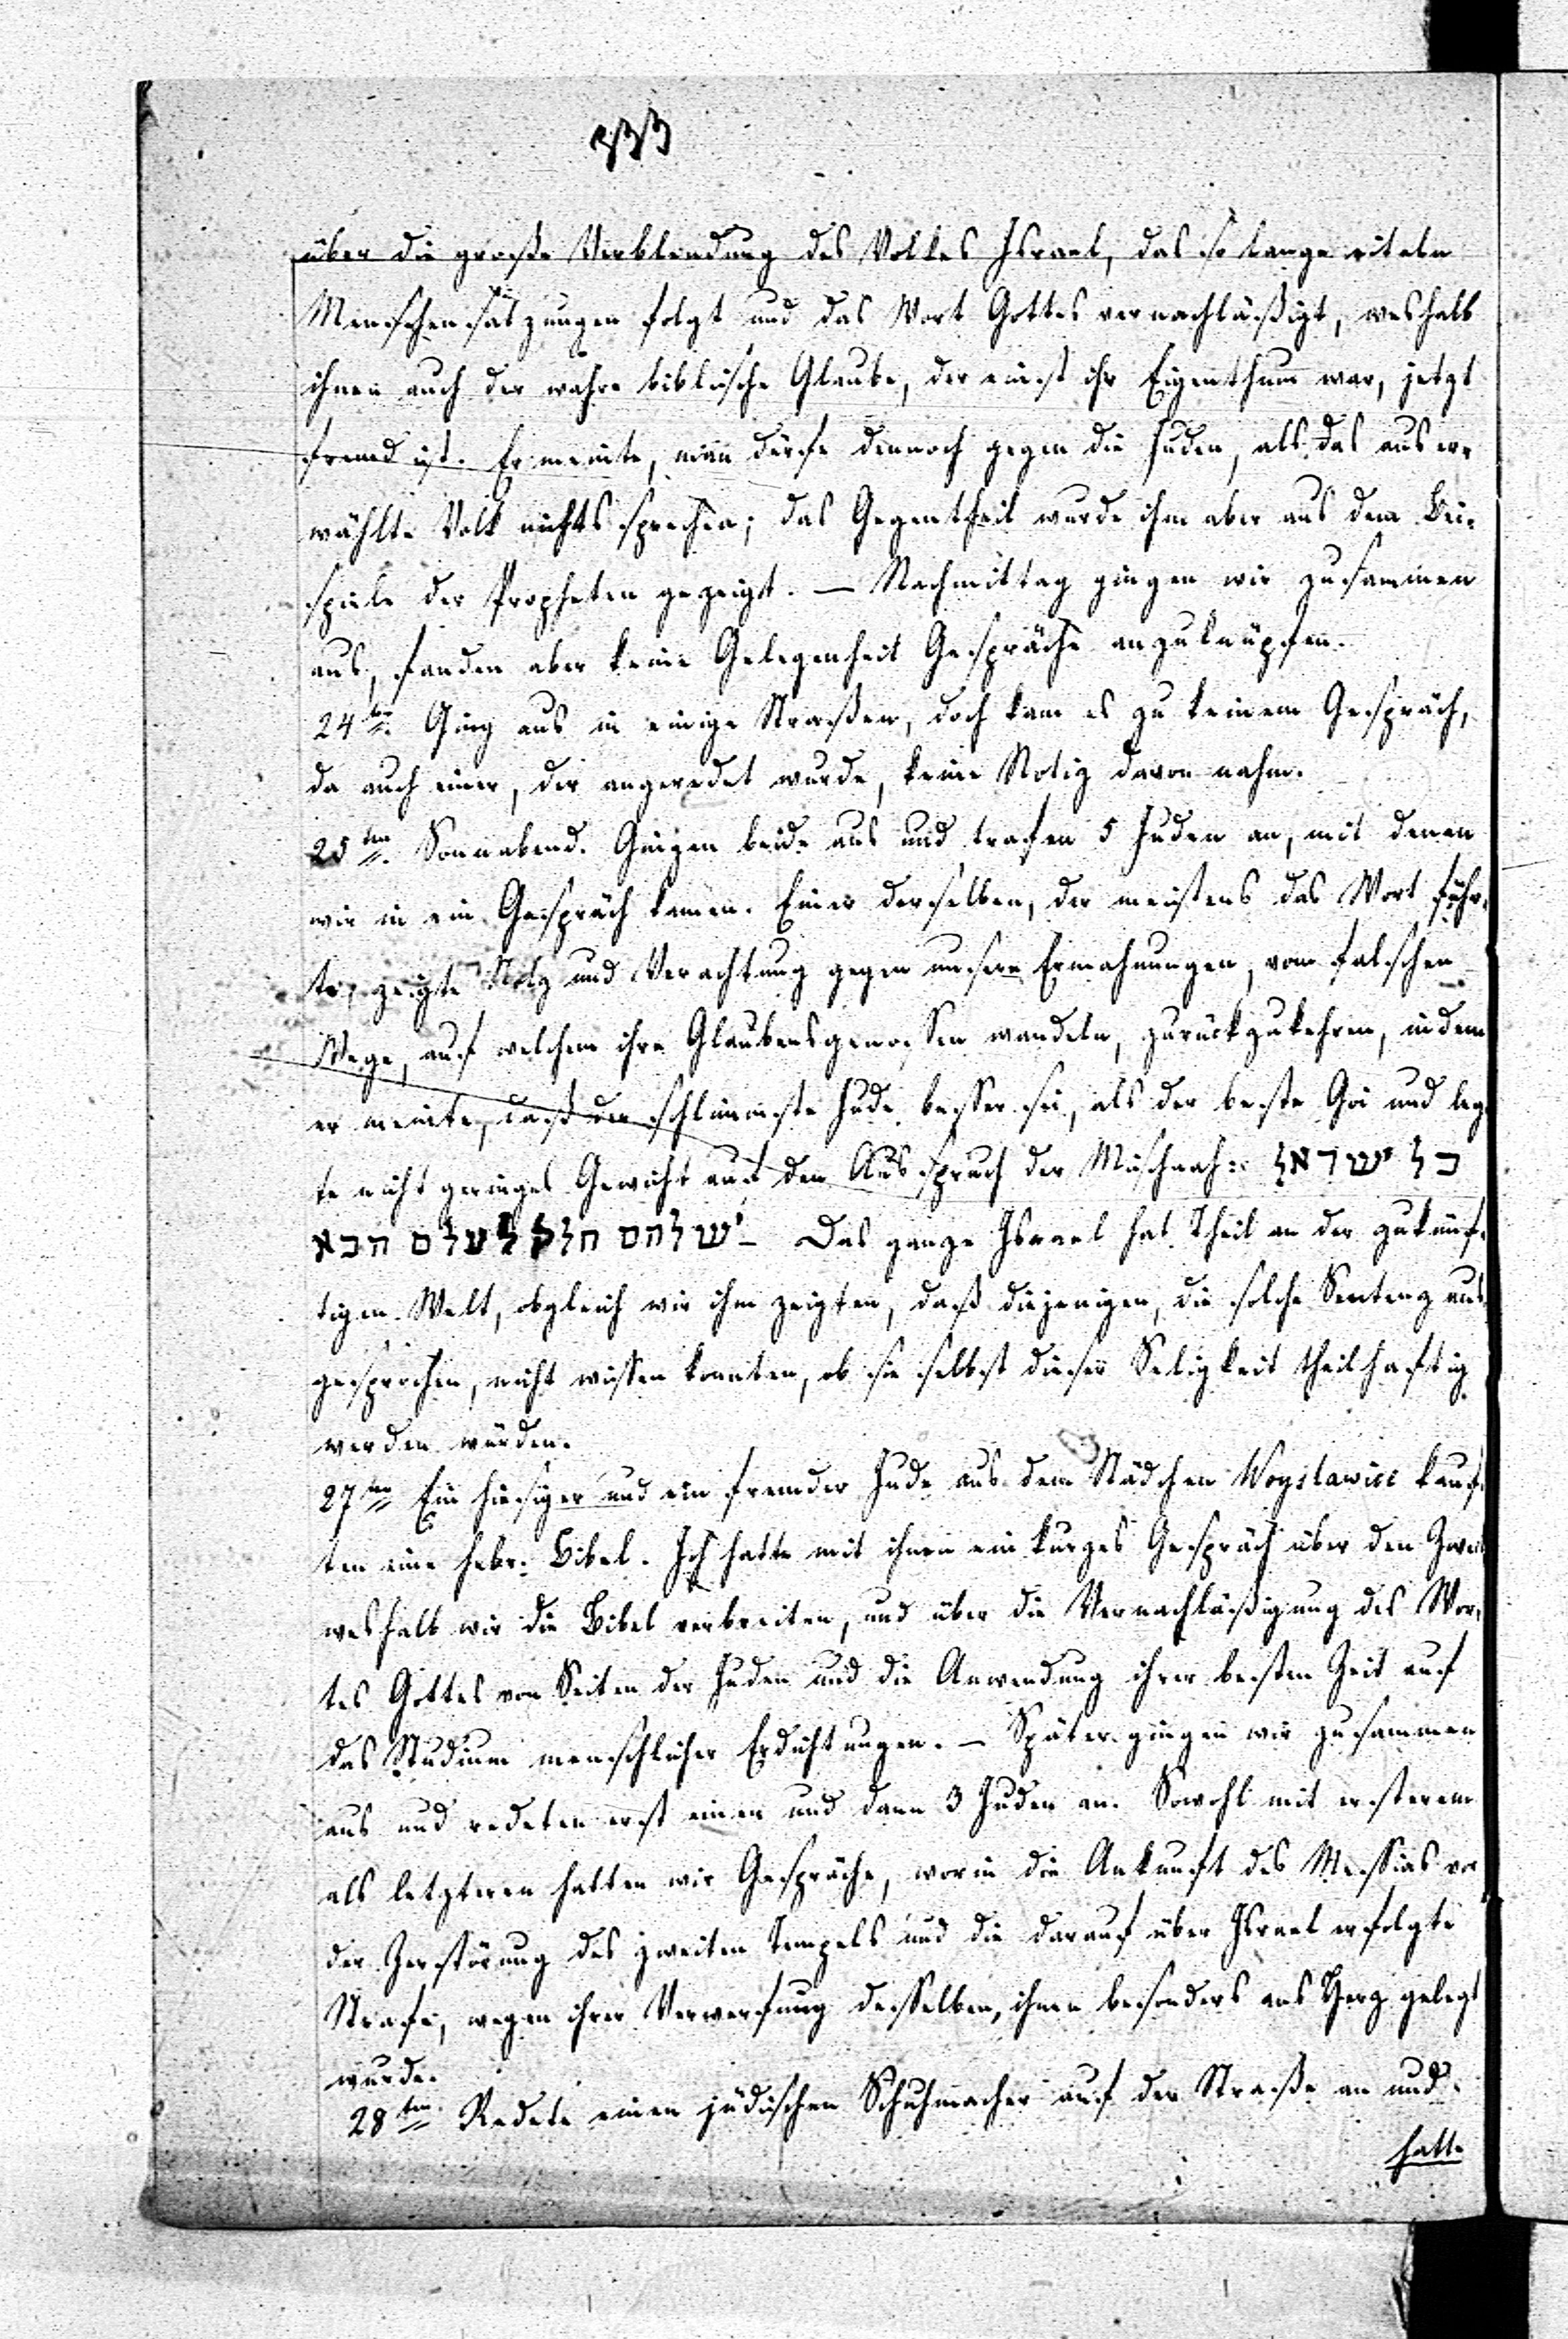 333
über die große Verblendung des Volkes Israel, das so lange eiteln
Menschensatzungen folgt und das Wort Gottes vernachläßigt, weshalb
ihnen auch der wahre biblische Glaube, der einst ihr Eigenthum war, jetzt
fremd ist. Er meinte, man dürfe dennoch gegen die Juden, als das auser-
wählte Volk nichts sprechen; das Gegentheil wurde ihm aber aus dem Bei-
spiele der Propheten gezeigt. — Nachmittag gingen wir zusammen
aus, fanden aber keine Gelegenheit Gespräche anzuknüpfen.
24ten Ging aus in einige Straßen, doch kam es zu keinem Gespräch,
da auch einer, der angeredet wurde, keine Notiz davon nahm.
25ten Sonnabend. Gingen beide aus und trafen 5 Juden an, mit denen
wir in ein Gespräch kamen. Einer derselben, der meistens das Wort führ-
te, zeigte Stolz und Verachtung gegen unsere Ermahnungen, vom falschen
Wege, auf welchem ihre Glaubensgenossen wandeln, zurückzukehren, indem
er meinte, daß der schlimmste Jude besser sei, als der beste Goi und leg-
te nicht geringes Gewicht auf den Ausspruch der Mischnah: כל ישראל
ישלהם חלק לעלם הבא – Das ganze Israel hat Theil an der zukünf-
tigen Welt, obgleich wir ihm zeigten, daß diejenigen, die solche Sentenz aus-
gesprochen, nicht wissen konnten, ob sie selbst dieser Seligkeit theilhaftig
werden würden.
27ten Ein hiesiger und ein fremder Jude aus dem Städchen Woyslawice kauf-
ten eine hebr. Bibel. Ich hatte mit ihnen ein kurzes Gespräch über den Zweck
weshalb wir die Bibel verbreiten, und über die Vernachläßigung des Wor-
tes Gottes von Seiten der Juden und die Anwendung ihrer besten Zeit auf
das Studium menschlicher Erdichtungen. – Später gingen wir zusammen
aus und redeten erst einen und dann 3 Juden an. Sowohl mit ersterem
als letzteren hatten wir Gespräche, worin die Ankunft des Messias vor
der Zerstörung des zweiten Tempels und die darauf über Israel erfolgte
Strafe, wegen ihrer Verwerfung desselben, ihnen besonders ans Herz gelegt
wurde.
28ten Redete einen jüdischen Schuhmacher auf der Straße an und
hatte